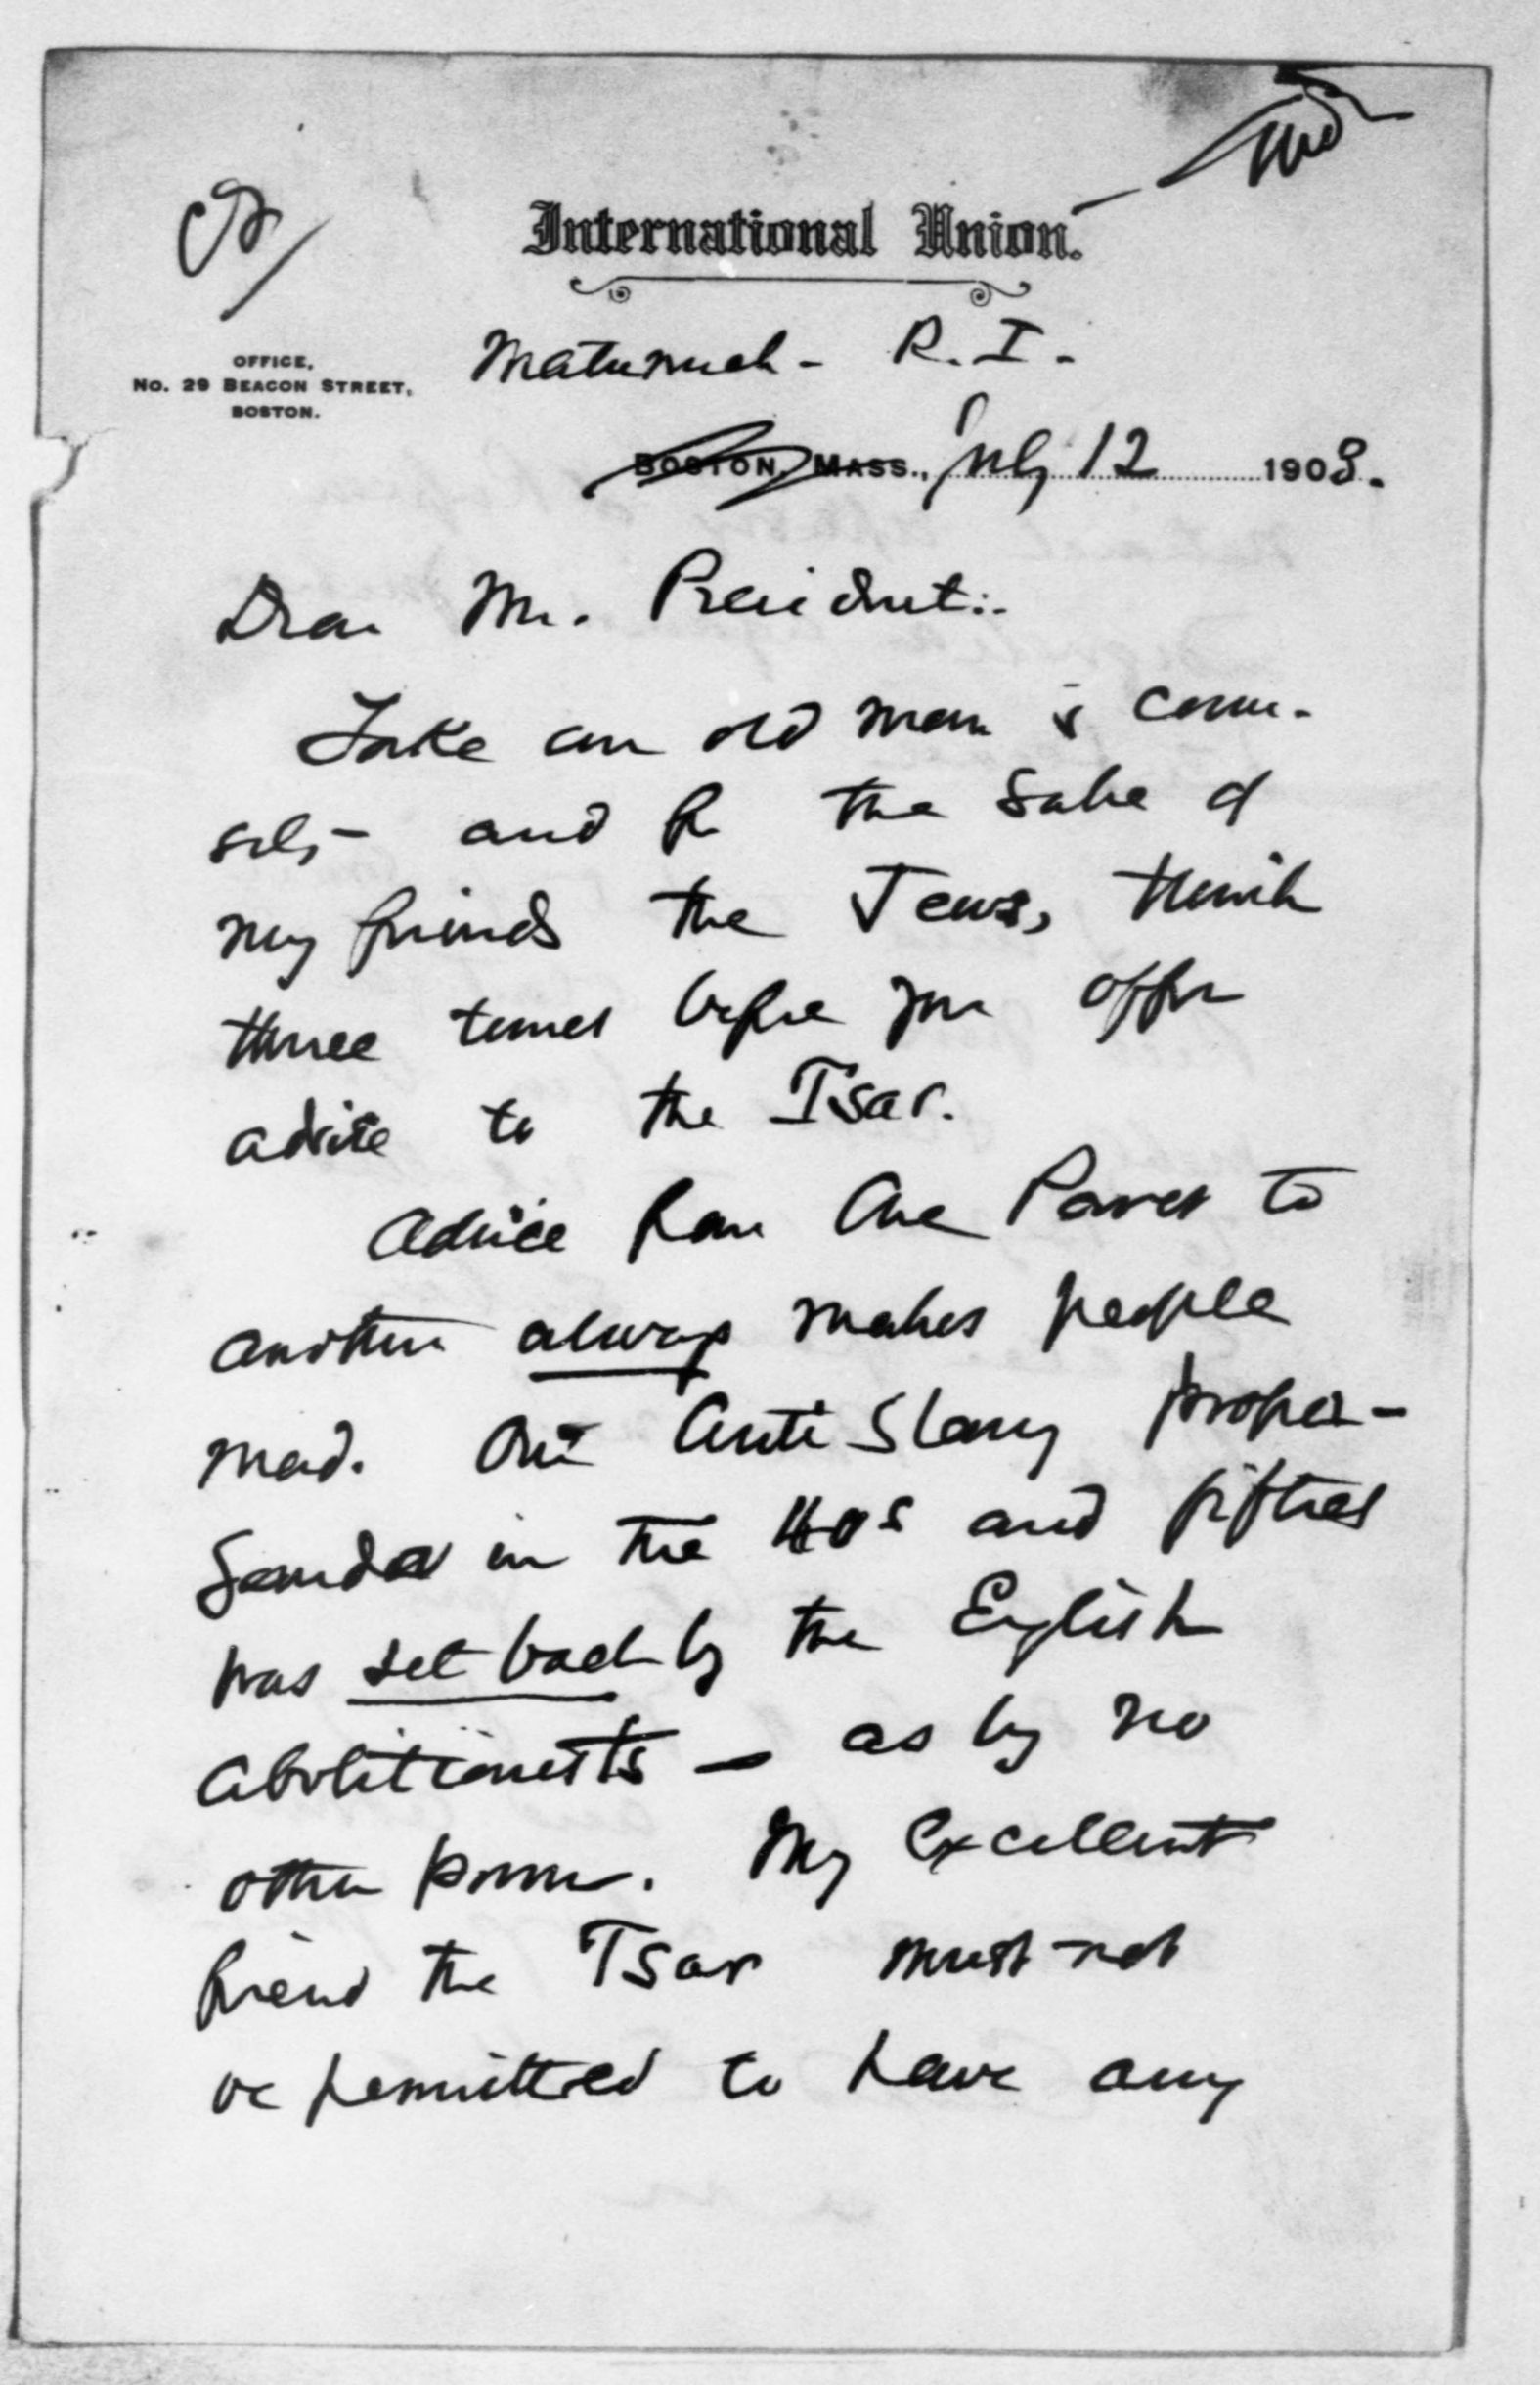 International Union.
OFFICE,
No. 29 BEACON STREET,
BOSTON.
Matunuck - R. I.
BOSTON, MASS., July 12 1903.
Dear Mr. President:-
Take an old man's coun-
sel, - and for the sake of
my friends the Jews, think
three times before you offer
advice to the Tsar.
Advice from One Power to
another always makes people
mad. Our Anti Slavery propa-
ganda in the 40s and fifties
was set back by the English
abolitionists — as by no
other power. My excellent
friend the Tsar must not
be permitted to have any